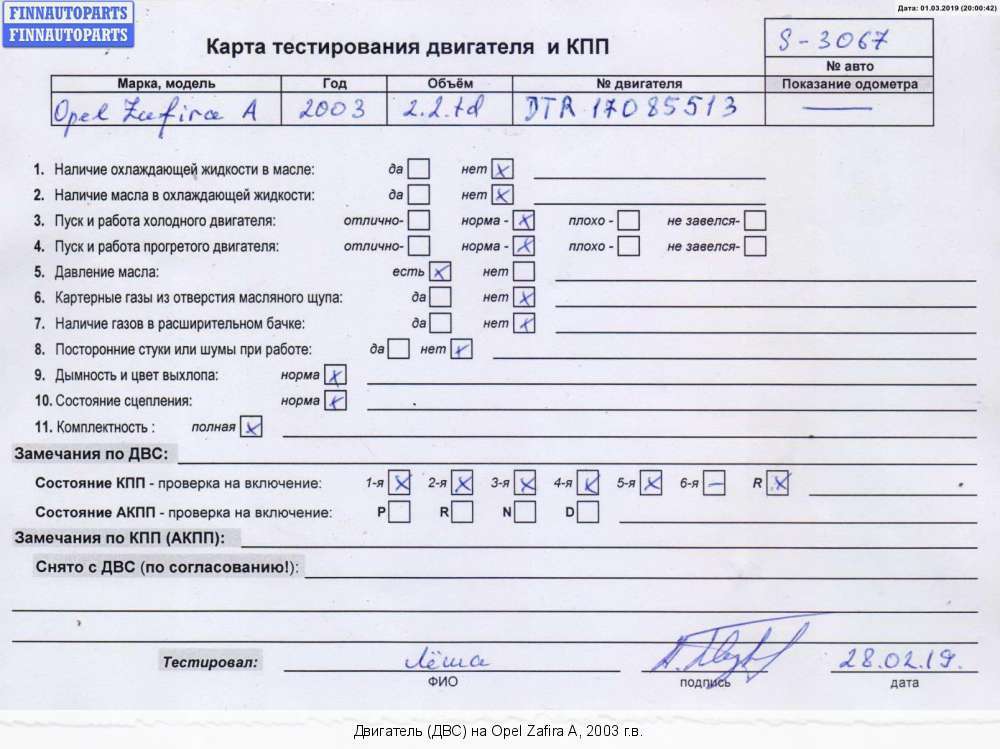 FINNAUTOPARTS
FINNAUTOPARTS
Дата: 01.03.2019 (20:00:42)
Карта тестирования двигателя и КПП
S-3067
№ авто
Марка, модель Год Объём № двигателя Показание одометра
Opel Zafira A 2003 2.2.td DTR 17085513 —
1. Наличие охлаждающей жидкости в масле: да нет x
2. Наличие масла в охлаждающей жидкости: да нет x
3. Пуск и работа холодного двигателя: отлично- норма - x плохо - не завелся-
4. Пуск и работа прогретого двигателя: отлично- норма - x плохо - не завелся-
5. Давление масла: есть x нет
6. Картерные газы из отверстия масляного щупа: да нет x
7. Наличие газов в расширительном бачке: да нет x
8. Посторонние стуки или шумы при работе: да нет x
9. Дымность и цвет выхлопа: норма x
10. Состояние сцепления: норма x
11. Комплектность : полная x
Замечания по ДВС:
Состояние КПП - проверка на включение: 1-я x 2-я x 3-я x 4-я x 5-я x 6-я — R x
Состояние АКПП - проверка на включение: P R N D
Замечания по КПП (АКПП):
Снято с ДВС (по согласованию!):
Тестировал: Лёша 28.02.19.
ФИО подпись дата
Двигатель (ДВС) на Opel Zafira A, 2003 г.в.